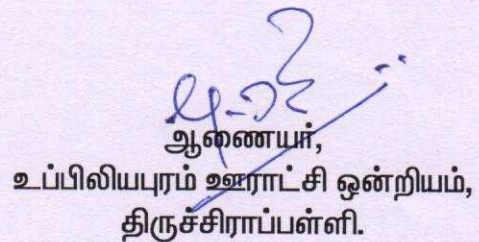 ஆணையர்,
உப்பிலியபுரம் ஊராட்சி ஒன்றியம்,
திருச்சிராப்பள்ளி.